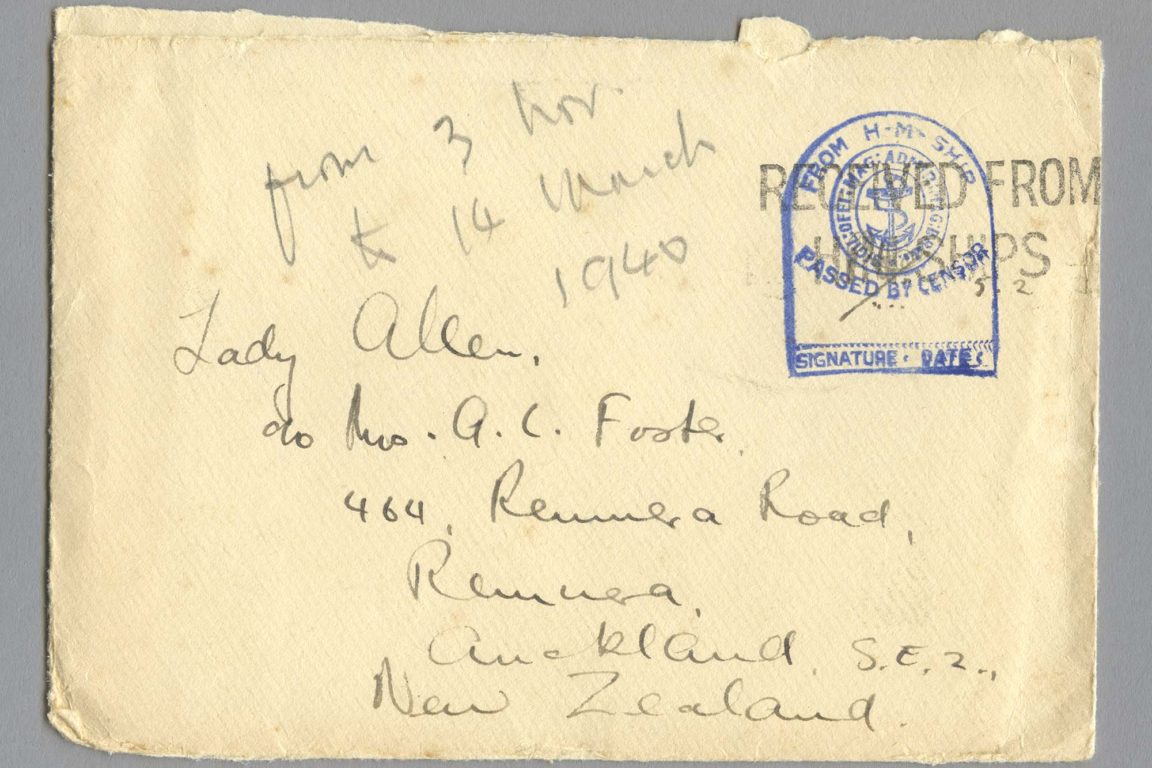 from 3 Nov.
to 14 March
1940
FROM H·M·SHIP
RECEIVED FROM
H.M. SHIPS
PASSED BY CENSOR
SIGNATURE · DATE
Lady Allen,
c/o Mrs. A. C. Foster,
464, Remuera Road,
Remuera,
Auckland, S.E.2.,
New Zealand.